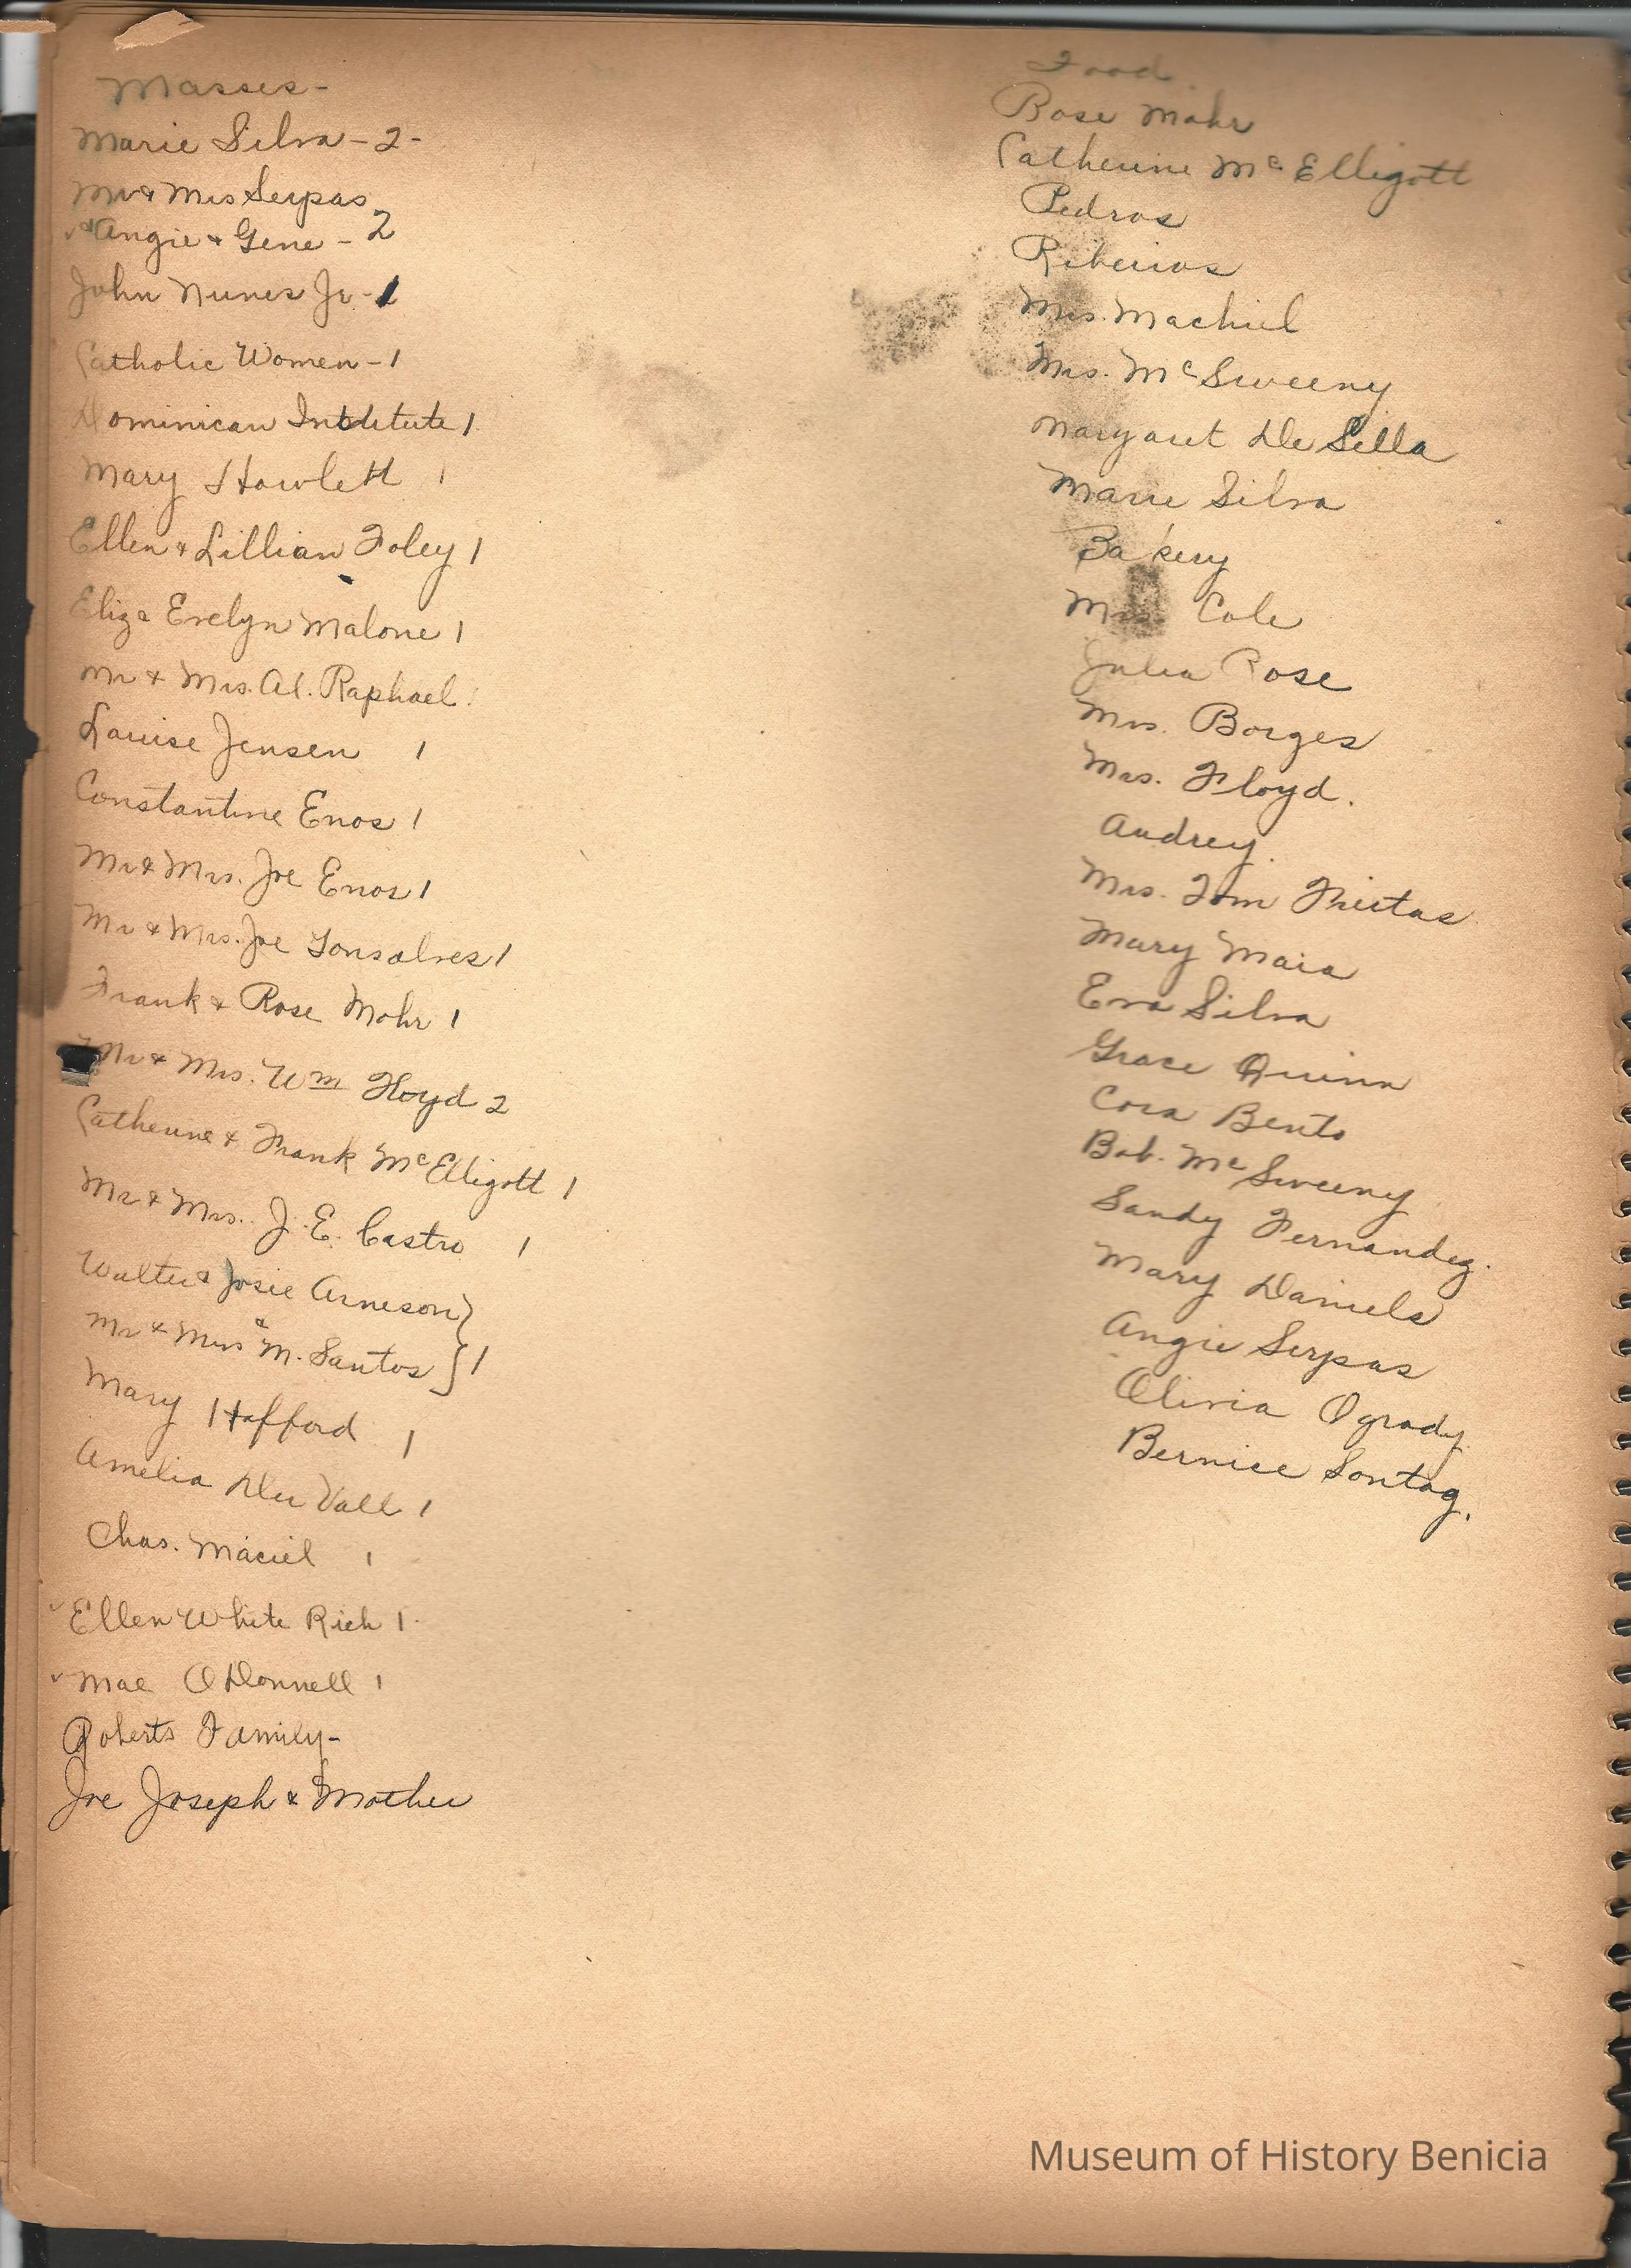 Masses-
Marie Silva - 2 -
Mr & Mrs Serpas
& Angie & Gene - 2
John Nunes Jr - 1
Catholic Women - 1
Dominican Institute 1
Mary Howlett 1
Ellen & Lillian Foley 1
Eliza Evelyn Malone 1
Mr & Mrs. Al. Raphael 1
Louise Jensen 1
Constantine Enos 1
Mr & Mrs. Joe Enos 1
Mr & Mrs. Joe Gonsalves 1
Frank & Rose Mohr 1
Mr & Mrs. Wm Floyd 2
Catherine & Frank McElligott 1
Mr & Mrs. J. E. Castro 1
Walter & Josie Arneson }
Mr & Mrs M. Santos } 1
Mary Hafford 1
Amelia Du Vall 1
Chas. Maciel 1
Ellen White Rich 1
Mae O Donnell 1
Roberts Family -
Joe Joseph & Mother
Food
Rose Mohr
Catherine McElligott
Pedros
Ribeiros
Mrs. Machiel
Mrs. McSweeny
Margaret De Sella
Marie Silva
Bakery
Mrs. Cole
Julia Rose
Mrs. Borges
Mrs. Floyd.
Audrey.
Mrs. Tom Frietas
Mary Maia
Eva Silva
Grace Quinn
Cora Bento
Bob. McSweeny
Sandy Fernandez.
Mary Daniels
Angie Serpas
Olivia Ogrady
Bernice Sontag.
Museum of History Benicia